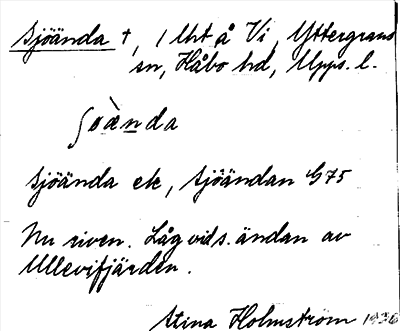 Sjöända †, 1 lht å Vi, Yttergrans
sn, Håbo hd, Upps. l.
ʃòä̀nda
Sjöända ek, Sjöändan G 75
Nu riven. Låg vid s. ändan av
Ullevifjärden.
Stina Holmström 1936